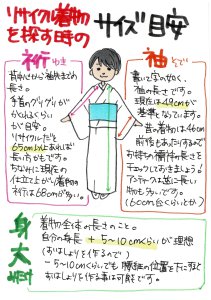 リサイクル着物
を探す時の
サイズ目安
裄 ゆき
背中心から袖先までの
長さ。
手首のグリグリが
かくれるくらい
が目安。
リサイクルだと
65cm以上あれば
長い方かもです。
ちなみに現在の
仕立て上がり着物の
裄は68cmが多い。
袖 そで
書いて字の如く、
袖の長さです。
現在は49cmが
基準となっています。
昔の着物は46cm
前後もあったりするので
お持ちの襦袢の長さを
チェックしておきましょう!
アンティークは逆に長い
物も多いです。
(60cm台くらいとか)
身丈 みたけ
着物全体の長さのこと。
自分の身長 +5〜10cmくらいが理想
(おはしょりを作るので)
−5〜10cmくらいでも腰紐の位置を下に取ると
おはしょりを作る事は可能です。